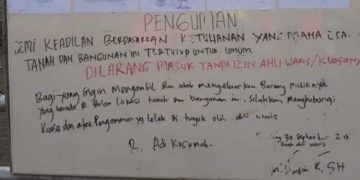 PENGUMAN
DEMI KEADILAN BERDASARKAN KETUHANAN YANG MAHA ESA.
TANAH DAN BANGUNAN INI TERTUTUP UNTUK UMUM.
DILARANG MASUK TANPA IZIN AHLI WARIS/KUASA
Bagi yang ingin mengambil dan atau mengeluarkan Barang miliknya
yang berada di dalam lokasi tanah dan bangunan ini. Silahkan Menghubungi
Kuasa dan atau Pengamanan yg telah di tunjuk oleh ahli waris
R. Adi Kusumah.
30 Septemb
R. SH